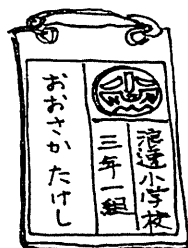 浪速小学校
三年一組
おおさか たけし